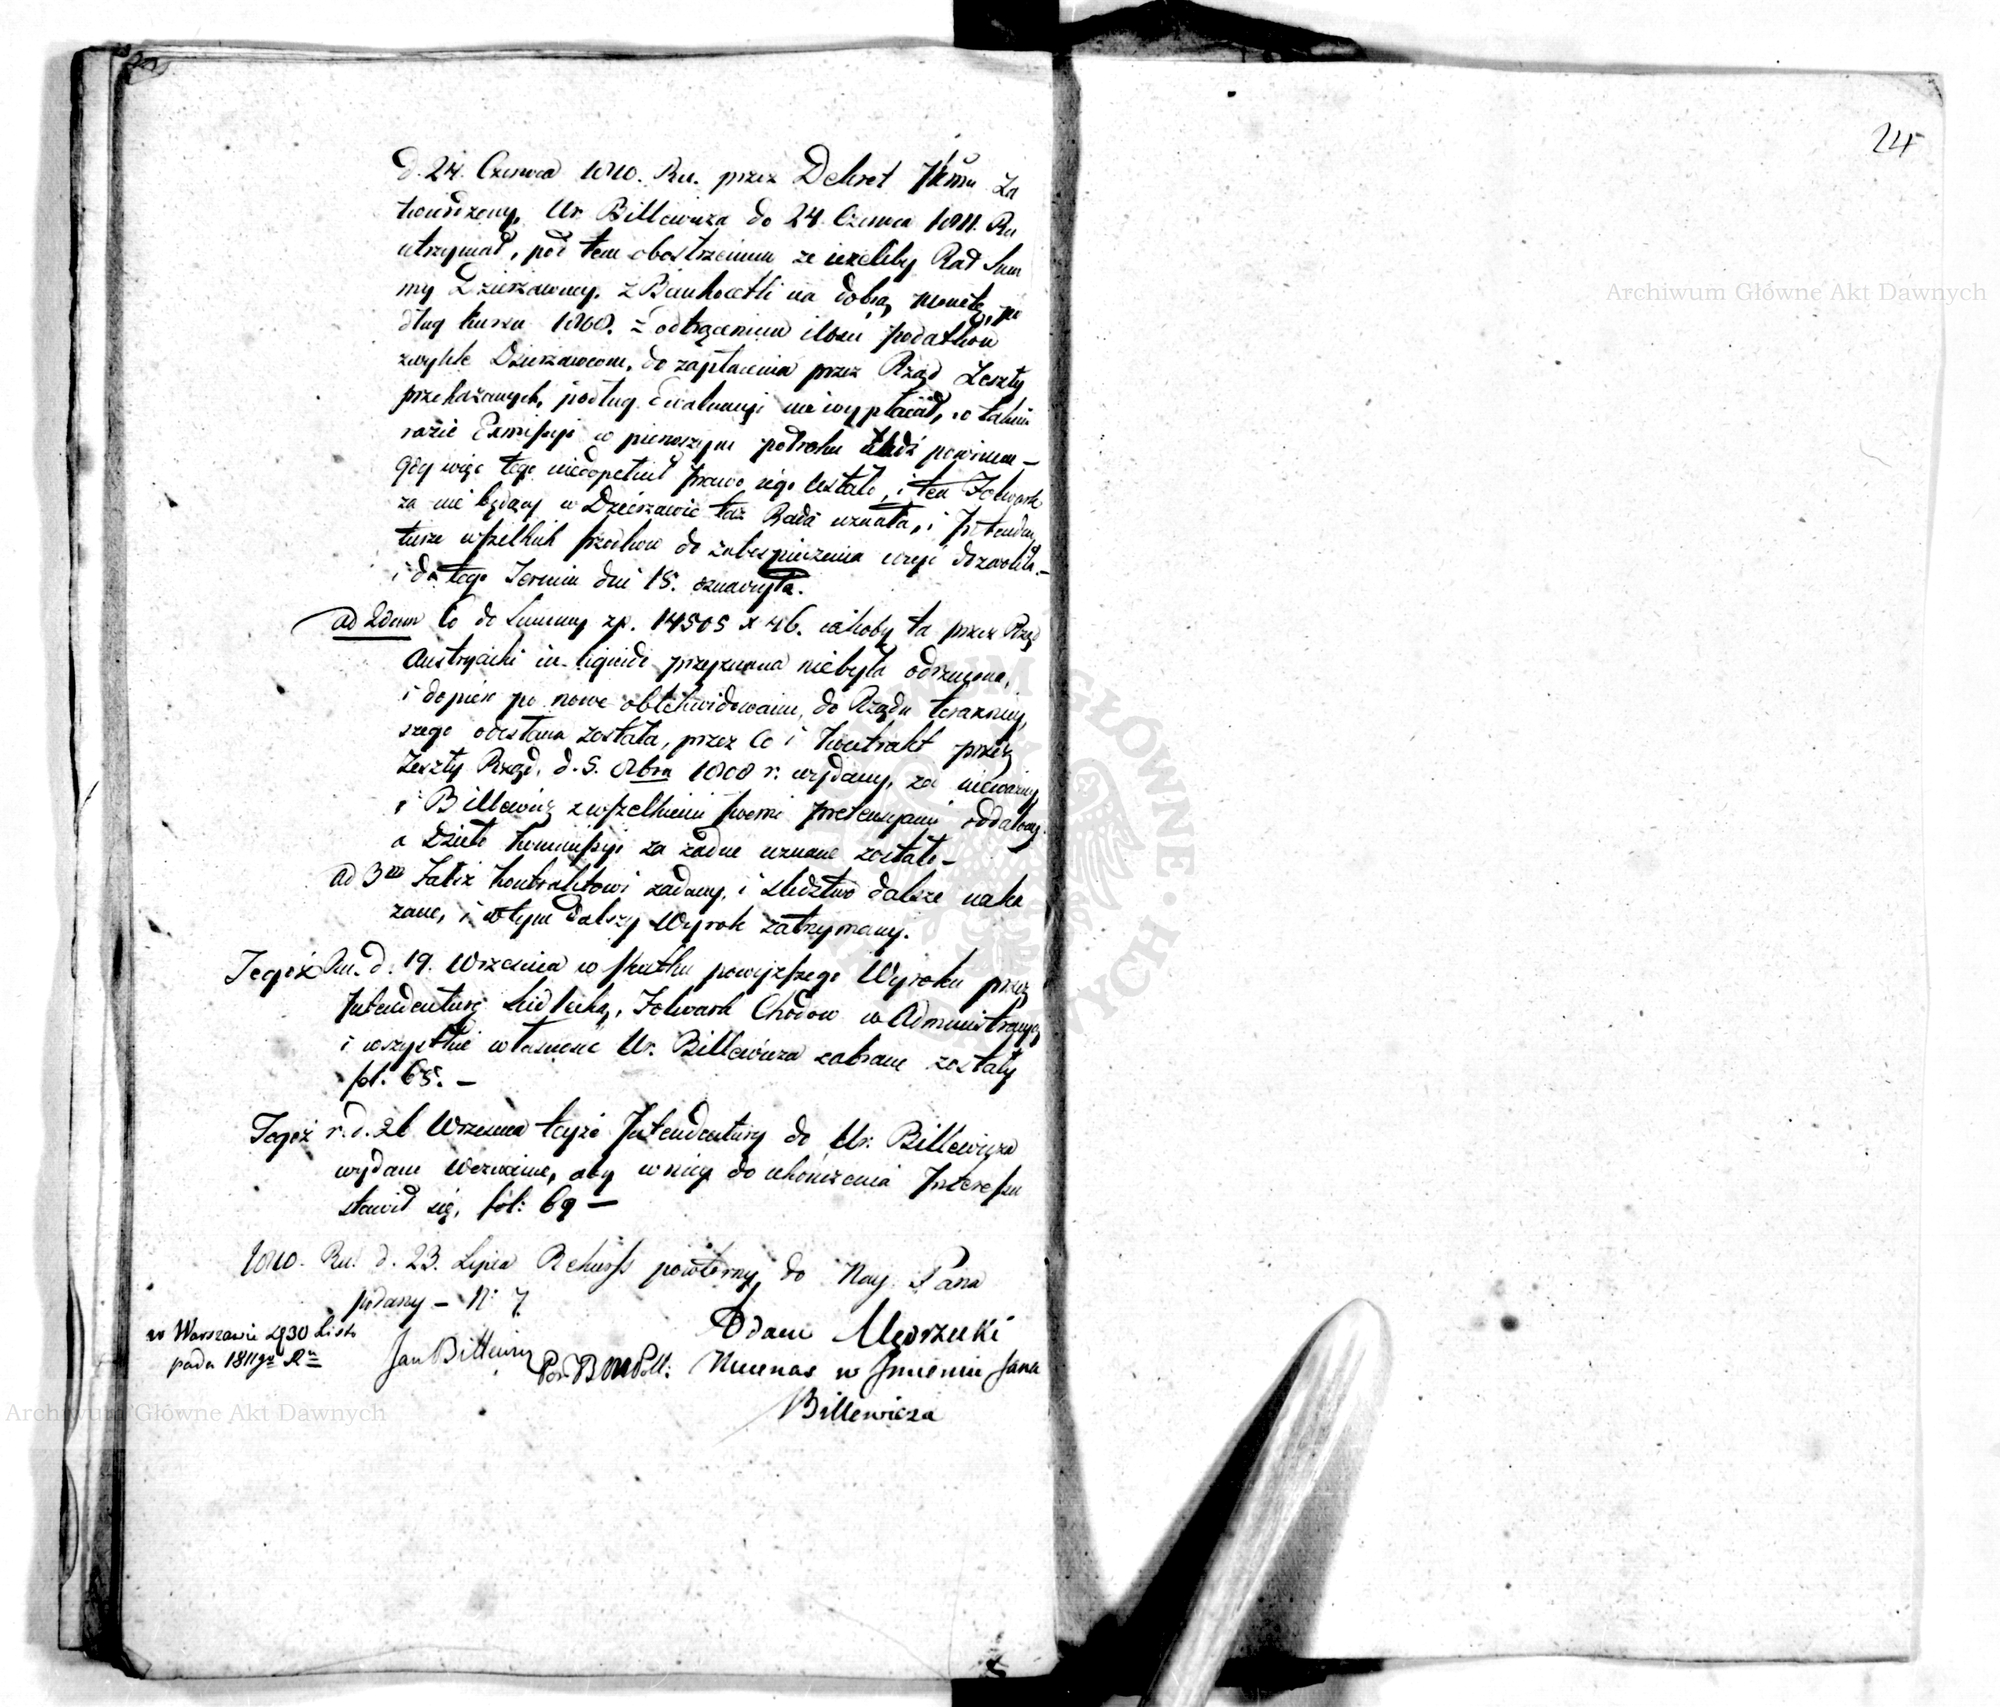 24
d. 24. Czerwca 1810. Ru. przez Dekret za
twierdzony, Ur. Billewicza do 24. Czerwca 1811. Ru
utrzymał, pod tem obostrzeniem ze iezeliby Rad Sum
my Dzierzawney, z Bankocetli na dobrą monetę, po
dług kursu z odtrąceniem ilości podatkow
zwykle Dzierzawcom, do zapłacenia przez Rząd Zeszły
przekazanych, podług Ewaluacyi nie wypłacił, w takim
razie Exmissyi w pierwszym połroku uledz powinien –
gdy więc tego niedopełnił prawo iego ustało, i ten Folwark
za nie będący w Dzierzawie taż Rada uznała, i Intenden
turze wszelkich srzodkow do zabespieczenia onego dozwoliła –
i do tego Termin dni 15. oznaczyła.
ad 2dum Co do Summy zp. 14505 x 46. iakoby ta przez Rząd
Austryacki in liquido przyznana niebyła odrzucona,
i dopiero po nowe oblikwidowanie, do Rządu teraźniey
szego odesłana została, przez co i kontrakt przez
Zeszły Rząd, d. 5. 8bra 1808 r. wydany, za nieważny
i Billewicz z wszelkiemi swemi pretensyami oddalony
a Dzieło Kommissyi za żadne uznane zostało –
ad 3m Fałsz kontraktowi zadany, i sledztwo dalsze naka
zane, i w tym dalszy Wyrok zatrzymany.
Tegoż Ru. d. 19. Września w skutku powyższego Wyroku przez
Intendenturę Siedlecką, Folwark Chodow w Administracyą
i wszystkie własność Ur. Billewicza zabrane zostały
fol. 65. –
Tegoż r. d. 26 Września teyże Intendentury do Ur. Billewicza
wydane wezwanie, aby w niey do ukończenia Interessu
stawił się, fol: 69 –
1810. Ru. d. 23. Lipca Rekurss powtorny do Nay. Pana
podany – N. 7.
w Warszawie d 30 Listo
pada 1811go Ru
Jan Billewicz
Adam Mędrzecki
Mecenas w Imieniu Jana
Billewicza
Archiwum Główne Akt Dawnych
Archiwum Główne Akt Dawnych